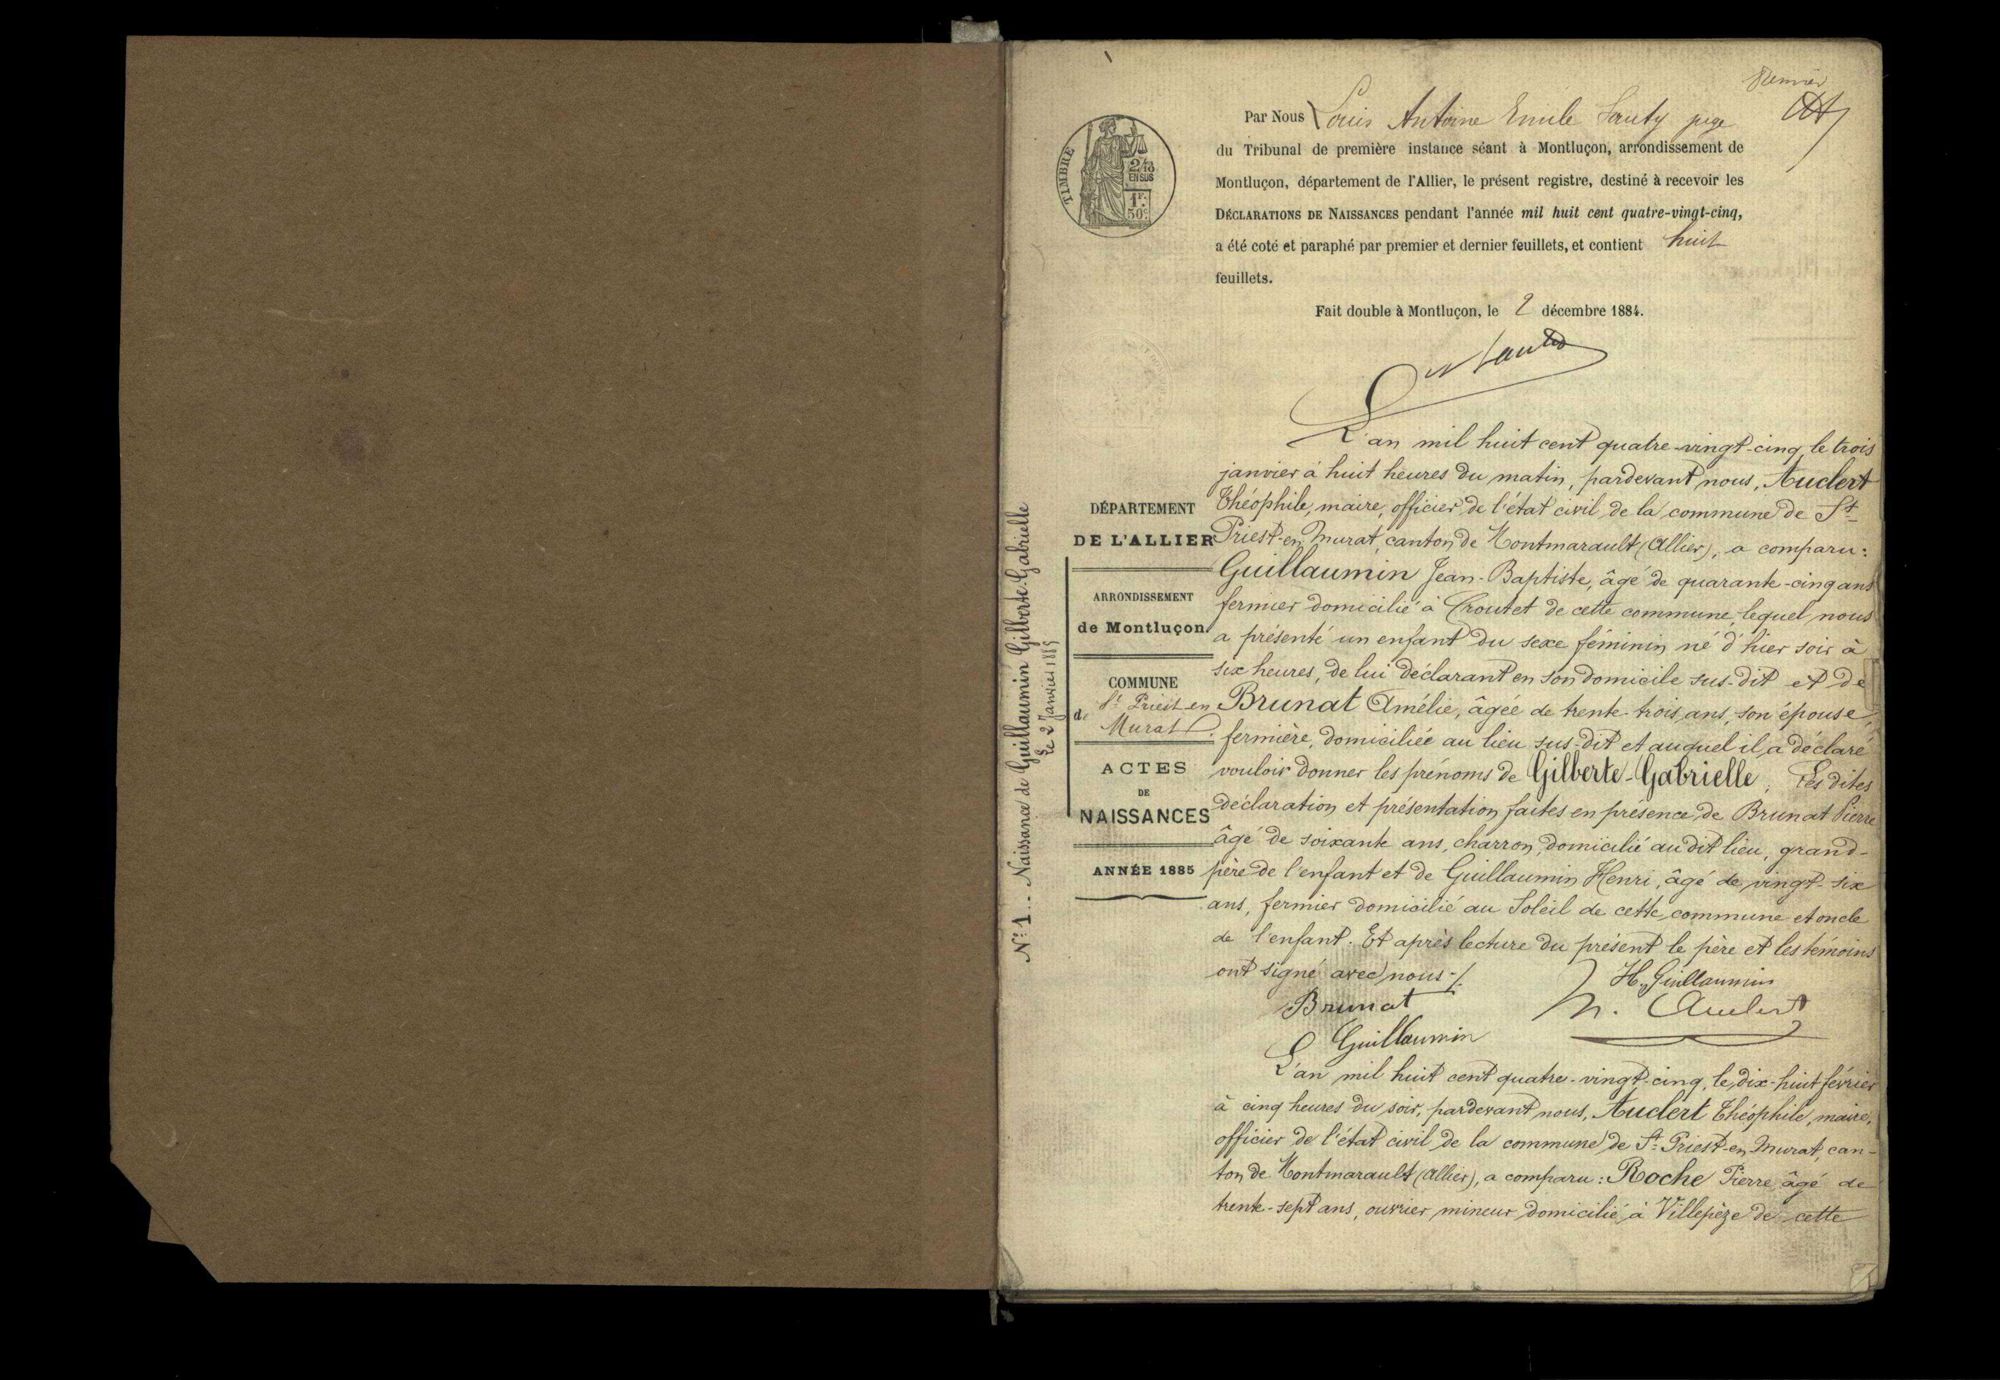 Premier
Par Nous Louis Antoine Emile Sauty juge
du Tribunal de première instance séant à Montluçon, arrondissement de
Montluçon, département de l'Allier, le présent registre, destiné à recevoir les
DÉCLARATIONS DE NAISSANCES pendant l'année mil huit cent quatre-vingt-cinq,
a été coté et paraphé par premier et dernier feuillets, et contient huit
feuillets.
Fait double à Montluçon, le 2 décembre 1884.
TIMBRE
2/10
EN SUS
1F.
50c.
DÉPARTEMENT
DE L'ALLIER
ARRONDISSEMENT
de Montluçon
COMMUNE
de St Priest en
Murat
ACTES
DE
NAISSANCES
ANNÉE 1885
No 1 .. Naissance de Guillaumin Gilberte-Gabrielle
le 2 Janvier 1885
L'an mil huit cent quatre-vingt-cinq, le trois
janvier à huit heures du matin, pardevant nous, Auclert
Théophile, maire, officier de l'état civil de la commune de St-
Priest-en Murat, canton de Montmarault (Allier), a comparu:
Guillaumin Jean-Baptiste, âgé de quarante-cinq ans
fermier domicilié à Croutet de cette commune, lequel nous
a présenté un enfant du sexe féminin né d'hier soir à
six heures, de lui déclarant en son domicile sus-dit et de
Brunat Amélie, âgée de trente-trois ans, son épouse,
fermière, domiciliée au lieu sus-dit et auquel il a déclaré
vouloir donner les prénoms de Gilberte-Gabrielle. Les dites
déclaration et présentation faites en présence de Brunat Pierre
âgé de soixante ans, charron, domicilié au dit lieu, grand-
père de l'enfant et de Guillaumin Henri, âgé de vingt-six
ans, fermier domicilié au Soleil de cette commune et oncle
de l'enfant. Et après lecture du présent le père et les témoins
ont signé avec nous ./.
H. Guillaumin
Brunat
Auclert
Guillaumin
L'an mil huit cent quatre-vingt-cinq, le dix-huit février
à cinq heures du soir, pardevant nous, Auclert Théophile, maire,
officier de l'état civil de la commune de St-Priest-en Murat, can-
ton de Montmarault (Allier), a comparu: Roche Pierre, âgé de
trente-sept ans, ouvrier mineur domicilié à Villepèze de cette